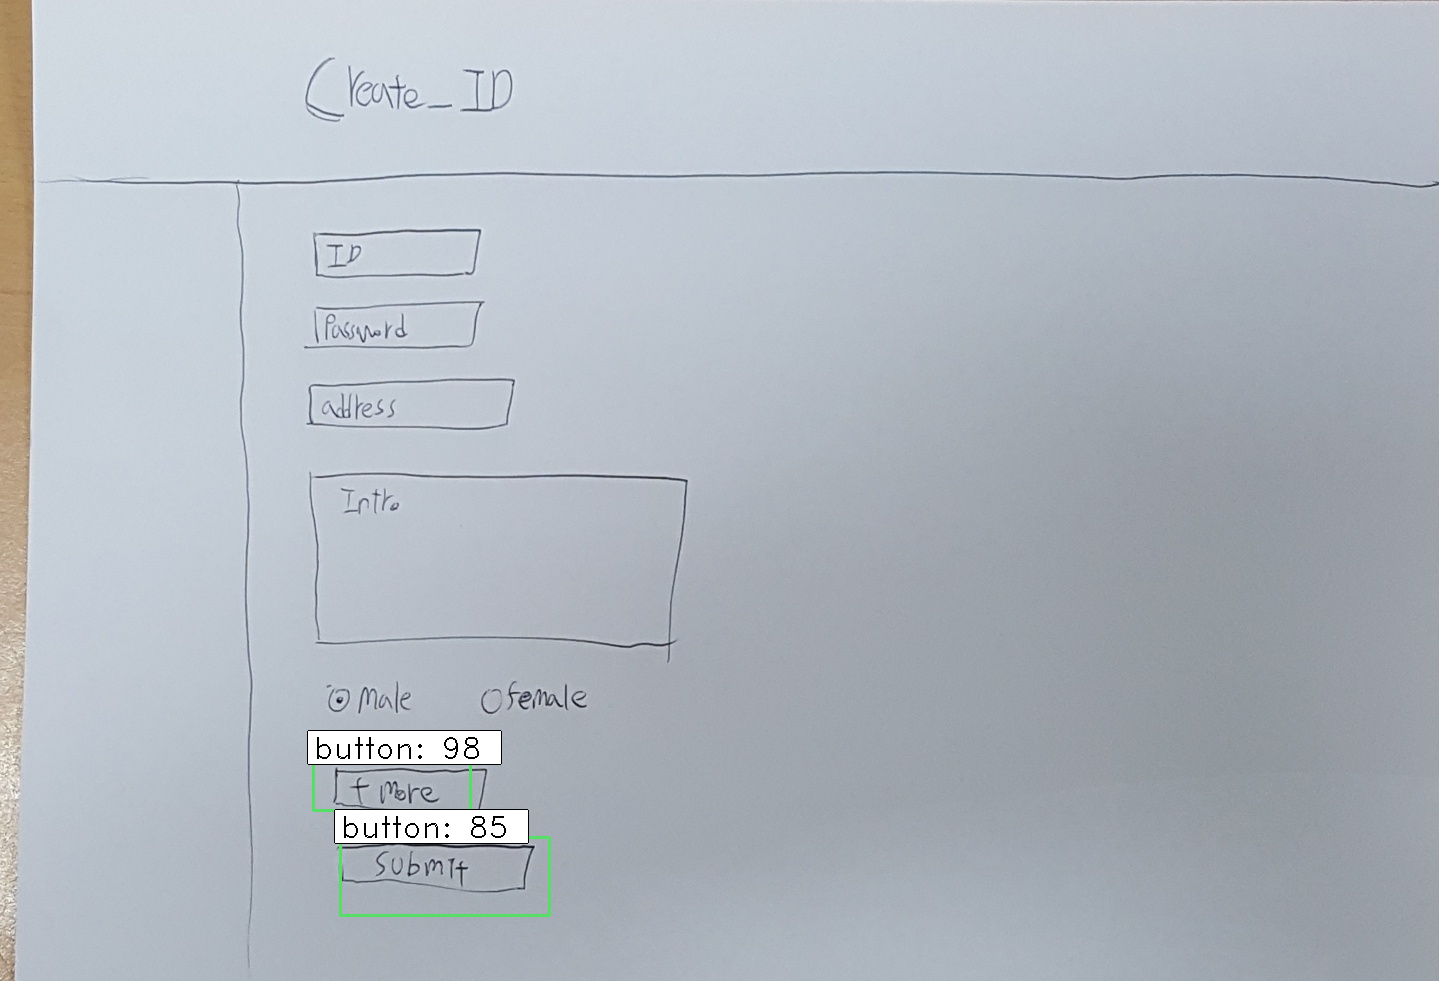 Create_ID
ID
Password
address
Intro
male female
button: 98
+ more
button: 85
Submit